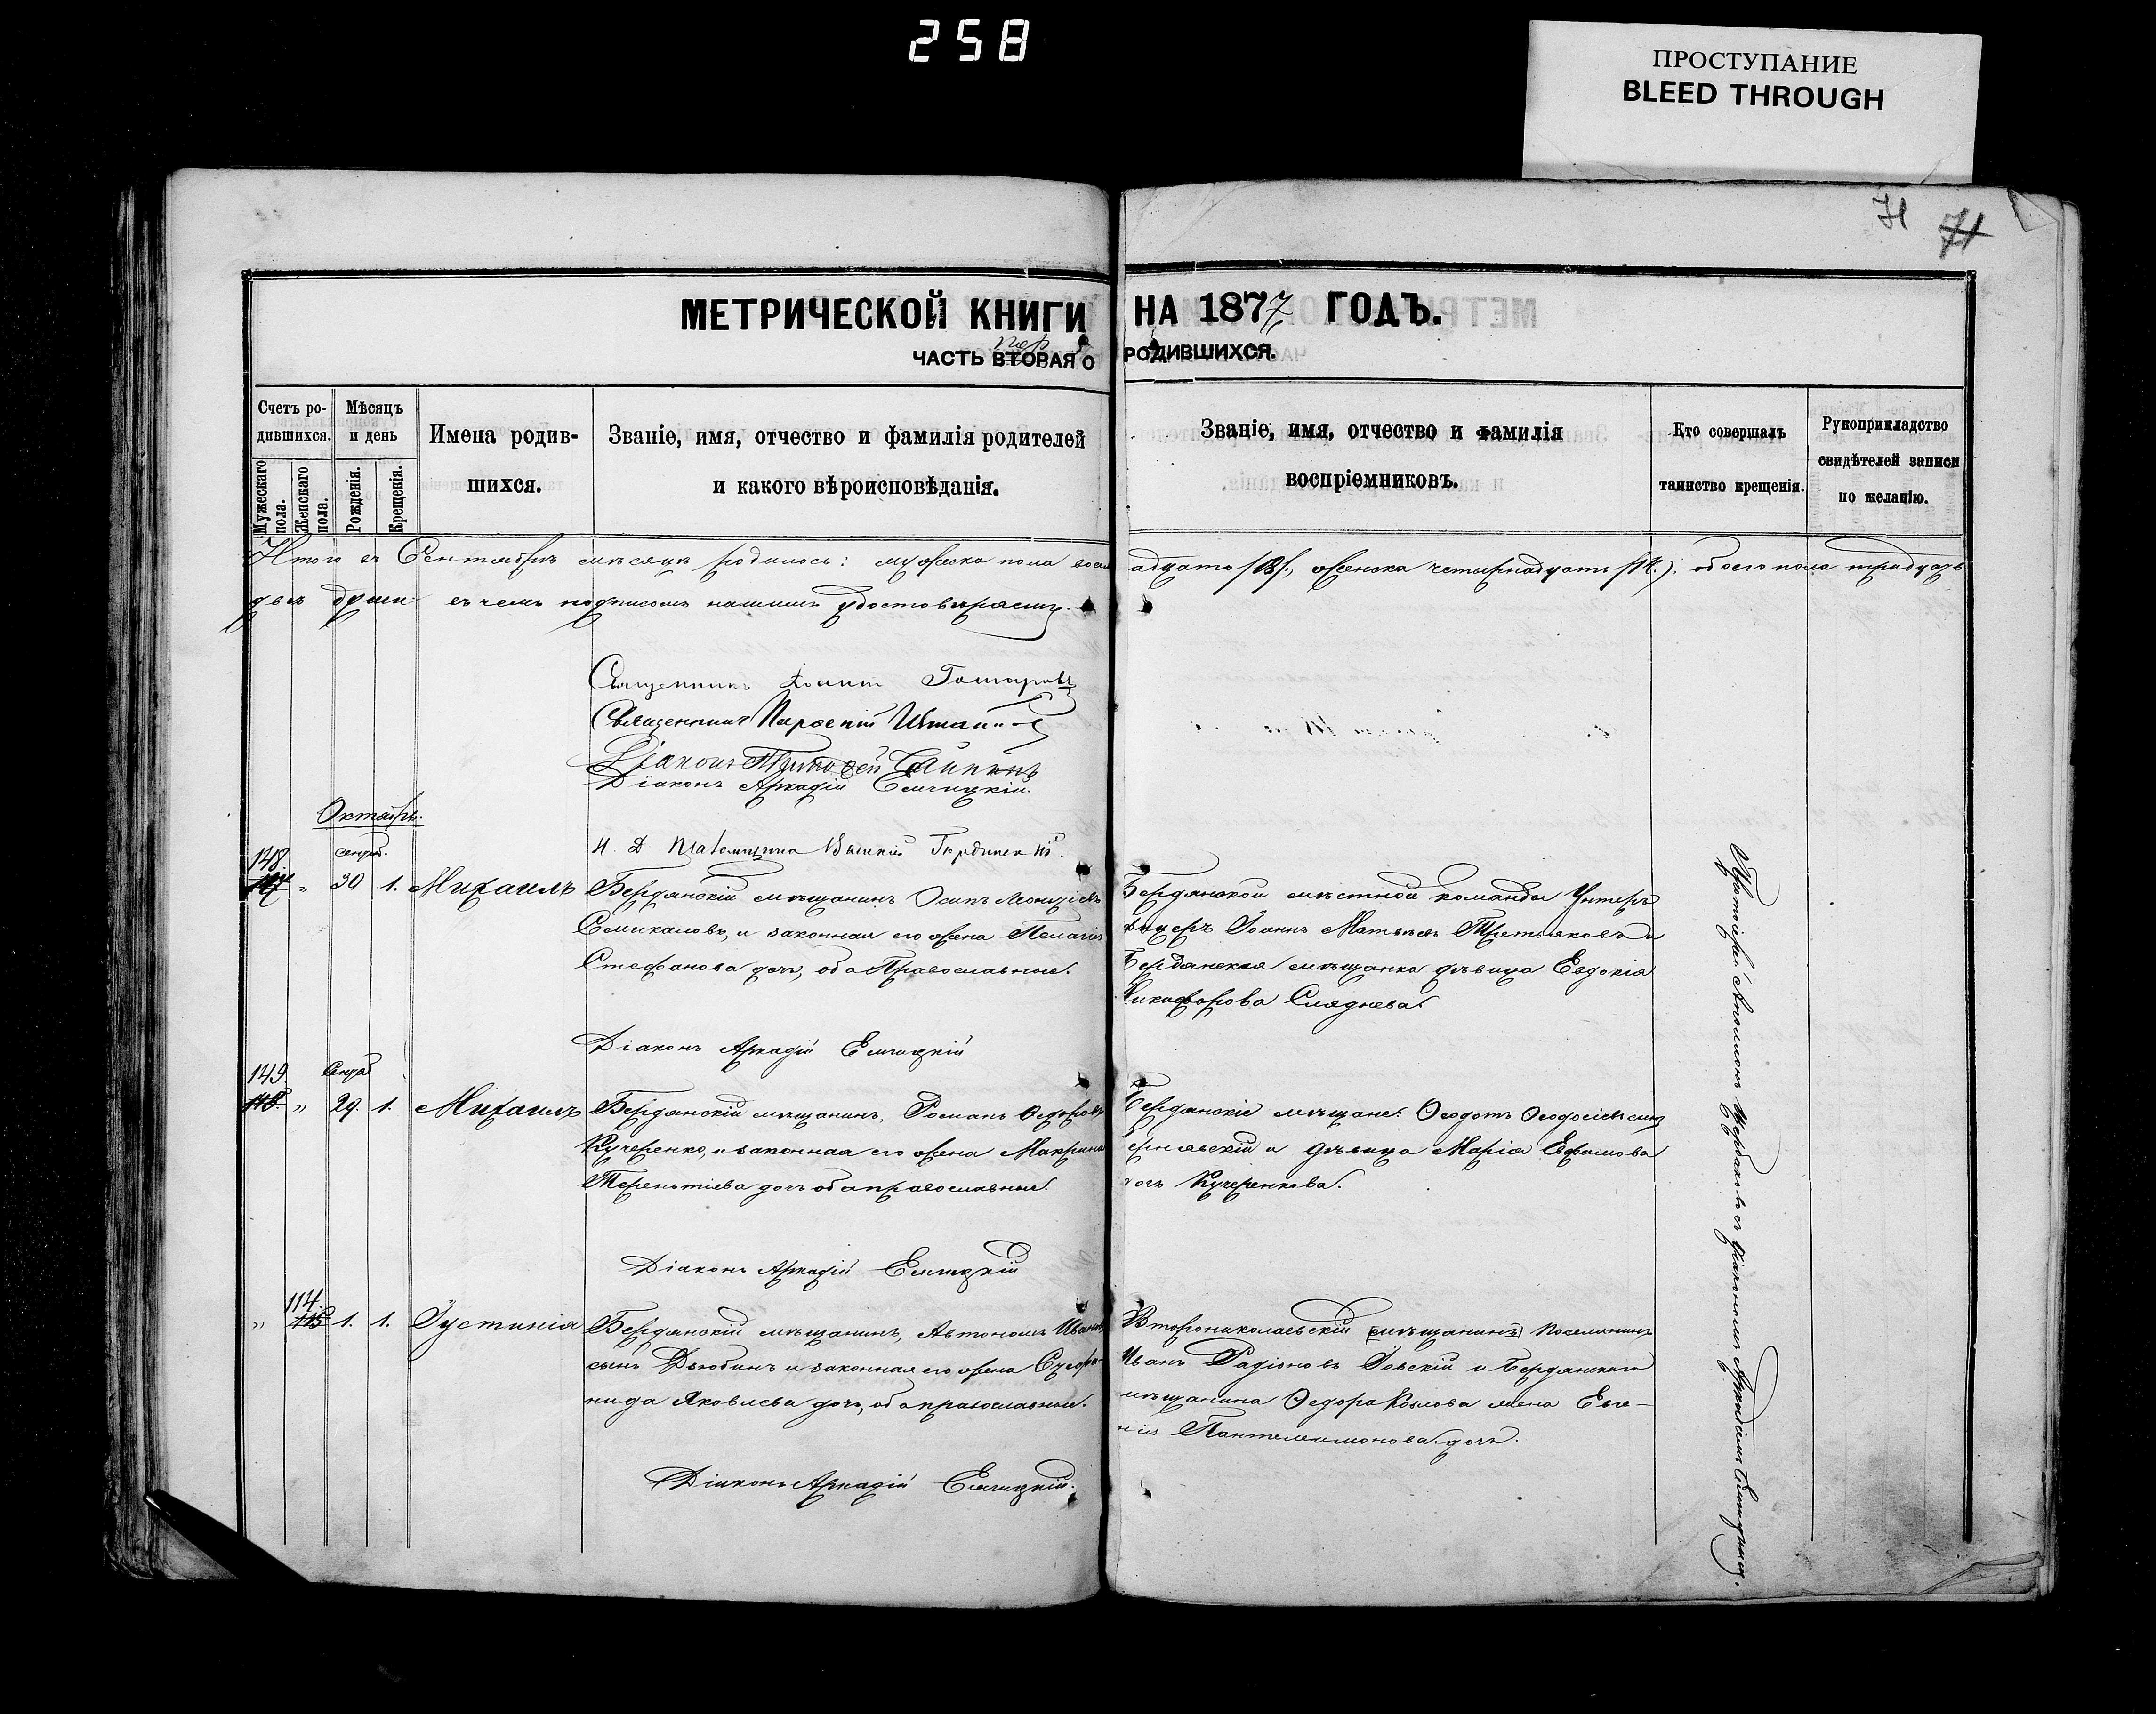 258
ПРОСТУПАНИЕ
BLEED THROUGH
71 71
МЕТРИЧЕСКОЙ КНИГИ НА 1877 ГОДЪ.
пер
ЧАСТЬ ВТОРАЯ О РОДИВШИХСЯ.
Счетъ родившихся.
Мужескаго пола.
Женскаго пола.
Мѣсяцъ и день
Рожденія.
Крещенія.
Имена родившихся.
Званіе, имя, отчество и фамилія родителей
и какого вѣроисповѣданія.
Званіе, имя, отчество и фамилія
воспріемниковъ.
Кто совершалъ
таинство крещенія.
Рукоприкладство
свидѣтелей записи
по желанію.
Итого въ Сентябрѣ мѣсяцѣ родилось: мужеска пола восемнадцать /18/, женска четырнадцать /14/, обоего пола тридцать
двѣ души въ чемъ подписомъ нашимъ удостовѣряемъ.
Священникъ Іоаннъ Гончаровъ
Священникъ Парѳеній
Діаконъ Тимоѳей
Діаконъ Аркадій Емчицкій.
Октябрь.
И. Д. Псаломщика Василій
148. сентяб.
147 " 30 1. Михаилъ
Бердянскій мѣщанинъ Осипъ Леонтіевъ
Семикаловъ, и законная его жена Пелагія
Стефанова дочь, оба Православные.
Бердянской мѣстной команды Унтеръ
Іоаннъ Матвѣевъ Третьяковъ и
Бердянская мѣщанка дѣвица Евдокія
Никифорова Сляднева.
Діаконъ Аркадій Емчицкій
149 Сентяб
148. " 29. 1. Михаилъ
Бердянскій мѣщанинъ, Романъ Ѳедоровъ
Кучеренко, и законная его жена Макрина
Терентіева дочь оба православные.
Бердянскіе мѣщане: Ѳеодотъ Ѳеодосіевъ сынъ
и дѣвица Марія Ефимова
дочь Кучеренкова.
Діаконъ Аркадій Емчицкій
114.
" 115 1. 1. Іустинія
Бердянскій мѣщанинъ, Автономъ Ивановъ
сынъ Дзюбинъ и законная его жена
Яковлева дочь, оба православные.
Второниколаевскій (мѣщанинъ) поселянинъ
Иванъ Радіоновъ и Бердянскаго
мѣщанина Ѳедора Козлова жена Евге-
нія Пантелеимонова дочь.
Діаконъ Аркадій Емчицкій.
Протоіерей Аполлонъ Щербаковъ съ діакономъ Аркадіемъ Емчицкимъ.